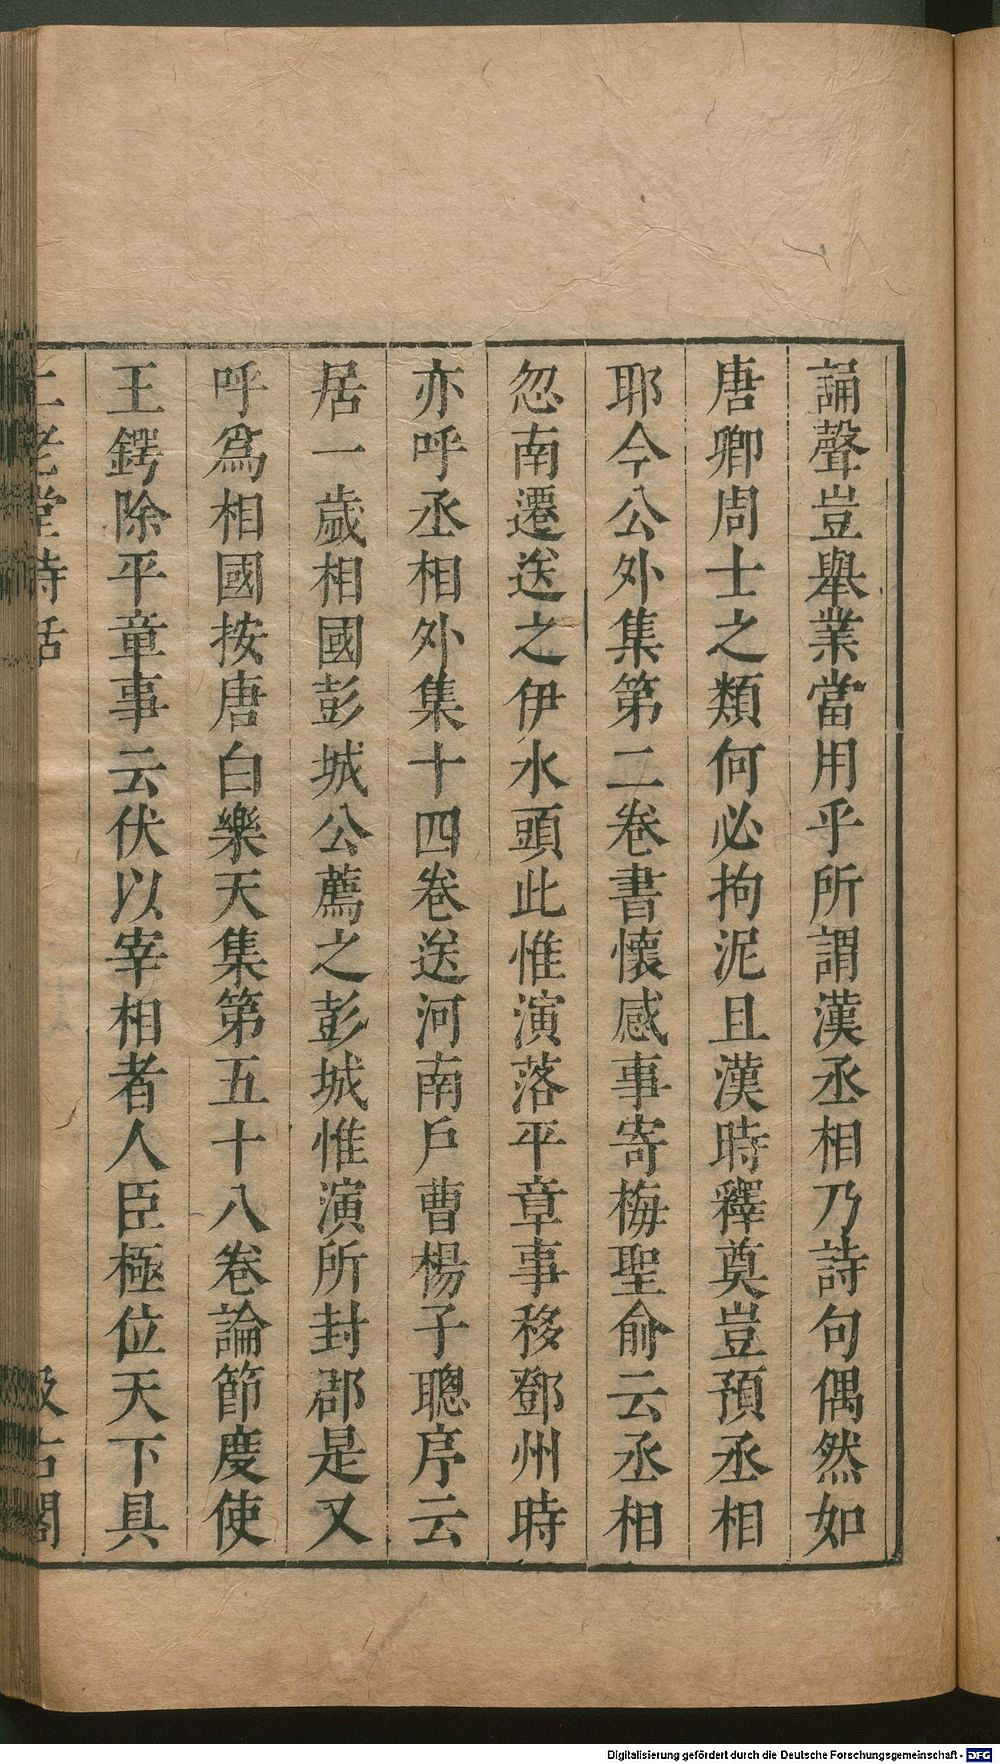 誦聲豈舉業當用乎所謂漢丞相乃詩句偶然如
唐卿周士之類何必拘泥且漢時釋奠豈預丞相
耶今公外集第二卷書懷感事寄梅聖俞云丞相
忽南遷送之伊水頭此惟演落平章事移鄧州時
亦呼丞相外集十四卷送河南戶曹楊子聰序云
居一歲相國彭城公薦之彭城惟演所封郡是又
呼爲相國按唐白樂天集第五十八卷論節度使
王鍔除平章事云伏以宰相者人臣極位天下具
二老堂詩話 汲古閣
Digitalisierung gefördert durch die Deutsche Forschungsgemeinschaft - DFG